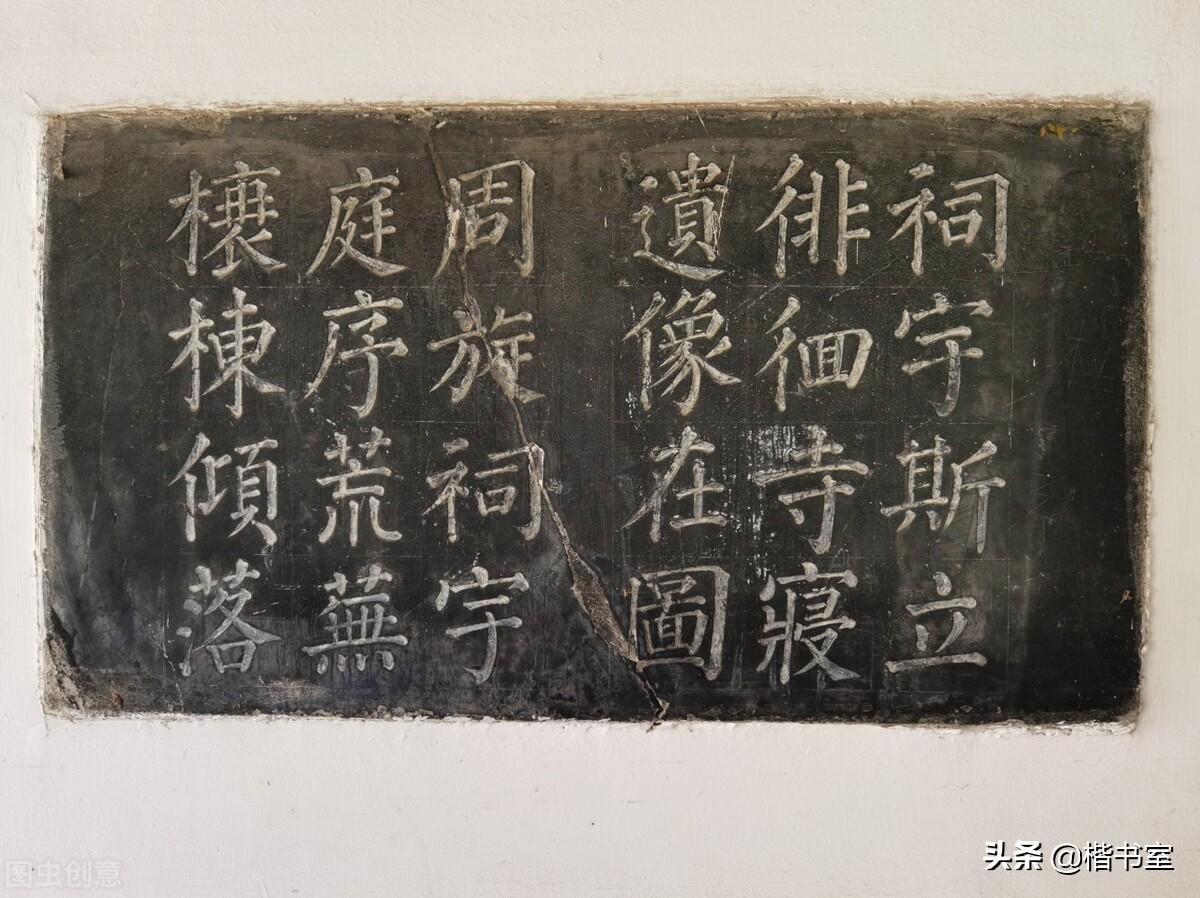 祠宇斯立
徘徊寺寢
遺像在圖
周旋祠宇
庭序荒蕪
榱棟傾落
头条 @楷书室
图虫创意